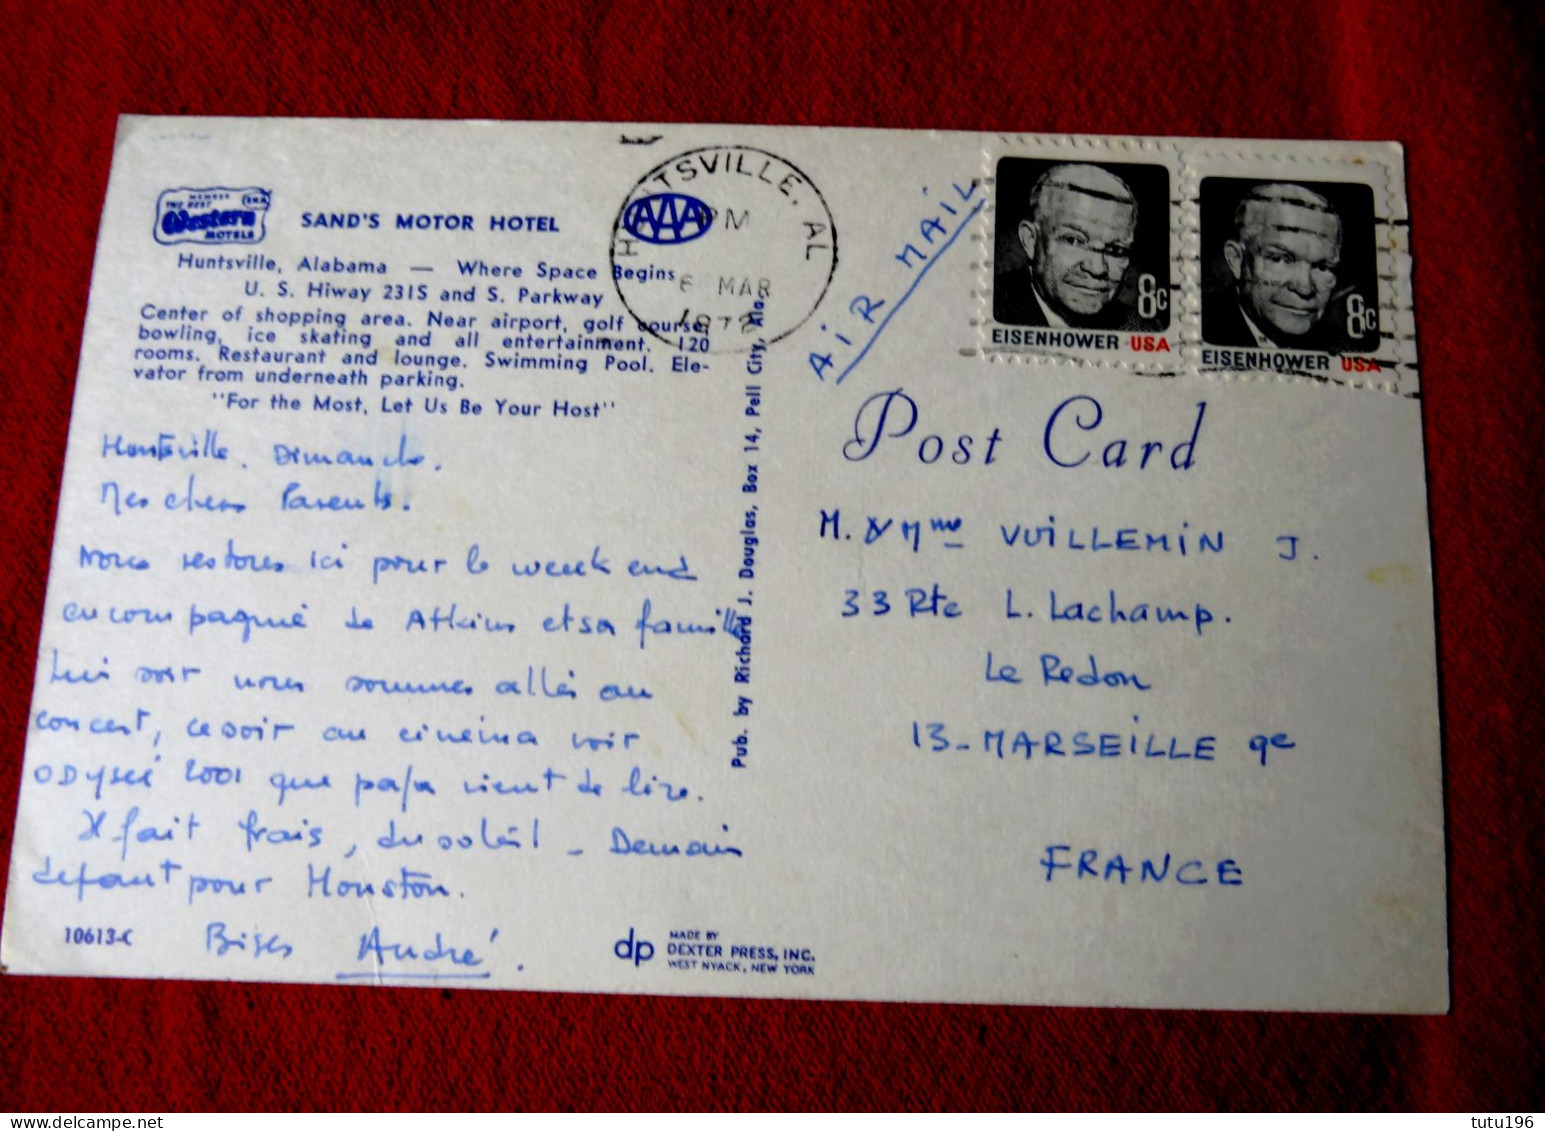 MEMBER
THE BEST
Western
MOTELS
SAND'S MOTOR HOTEL
AAA
Huntsville, Alabama — Where Space Begins
U. S. Hiway 231S and S. Parkway
Center of shopping area. Near airport, golf course,
bowling, ice skating and all entertainment. 120
rooms. Restaurant and lounge. Swimming Pool. Ele-
vator from underneath parking.
"For the Most, Let Us Be Your Host"
HUNTSVILLE, AL
PM
6 MAR
1972
AIR MAIL
8c
EISENHOWER USA
8c
EISENHOWER USA
Huntsville. Dimanche.
Mes chers Parents.
Nous restons ici pour le week end
en compagnie de Atkins et sa famille
hier soir nous sommes allés au
concert, ce soir au cinéma voir
ODyseé 2001 que papa vient de lire.
Il fait frais, du soleil - Demain
départ pour Houston.
Bises André.
10613-C
dp
MADE BY
DEXTER PRESS, INC.
WEST NYACK, NEW YORK
Pub. by Richard J. Douglas, Box 14, Pell City, Ala.
Post Card
M. & Mme VUILLEMIN J.
33 Rte L. Lachamp.
Le Redon
13-MARSEILLE 9e
FRANCE
tutu196